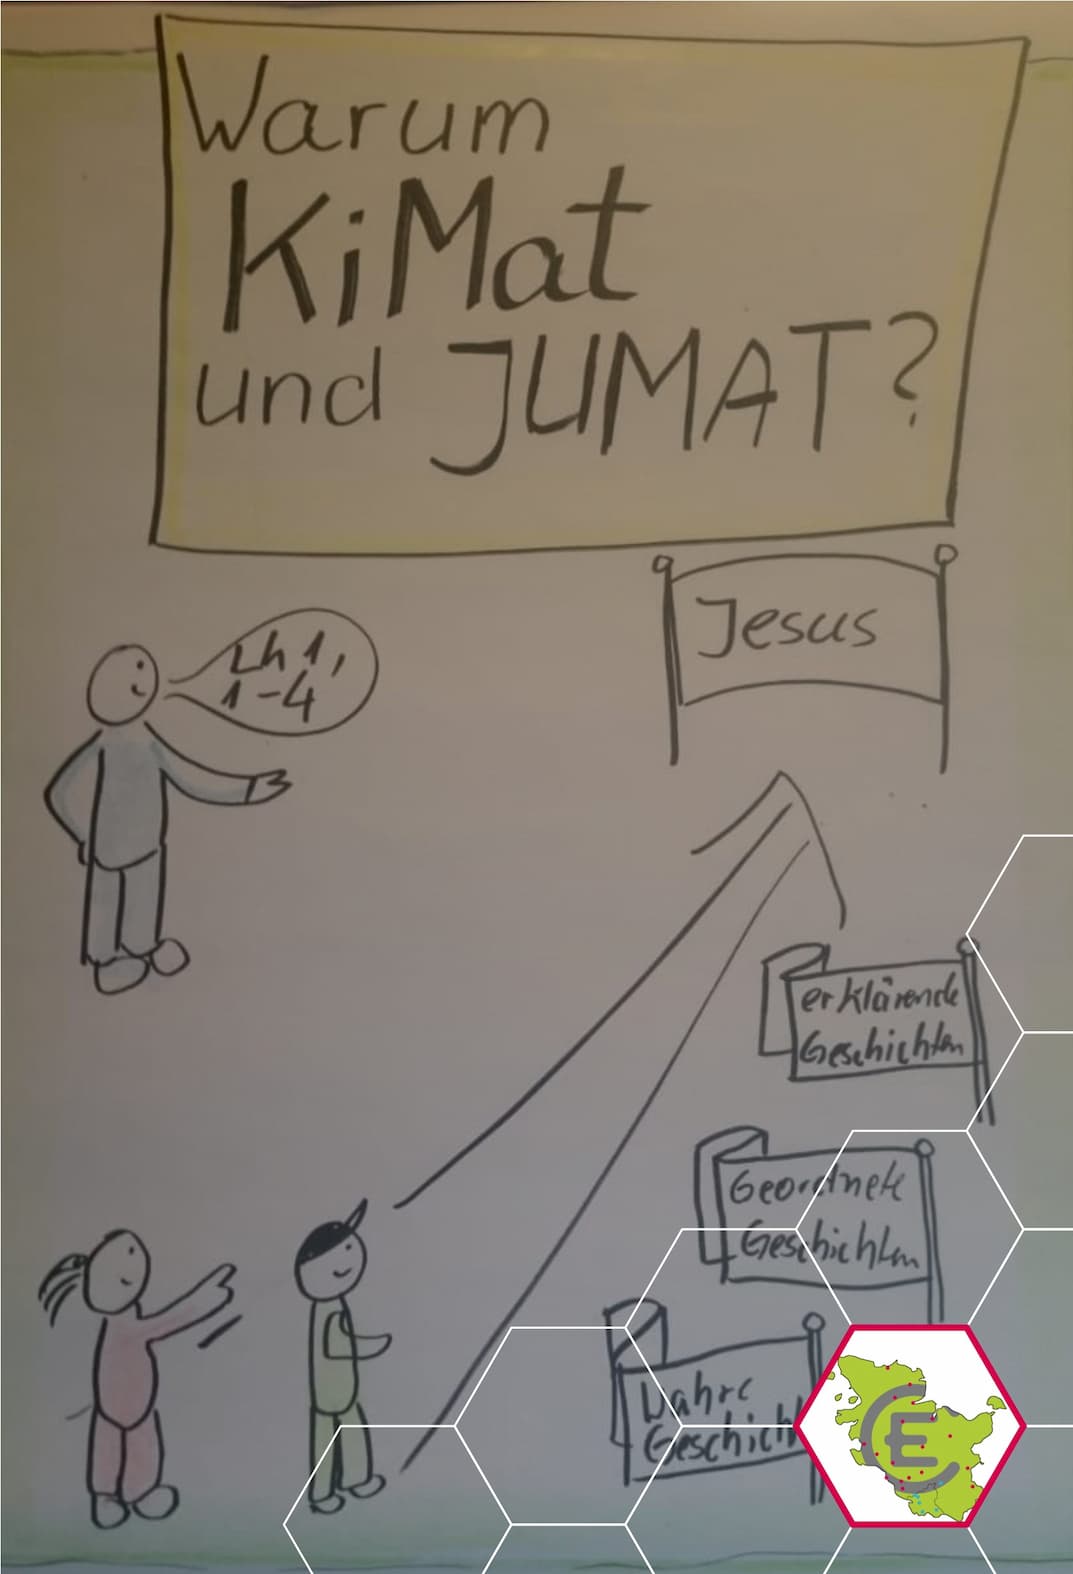 Warum
KiMat
und JUMAT?
Jesus
Lk 1,
1-4
erklärende
Geschichten
Geordnete
Geschichten
Wahre
Geschicht
CE